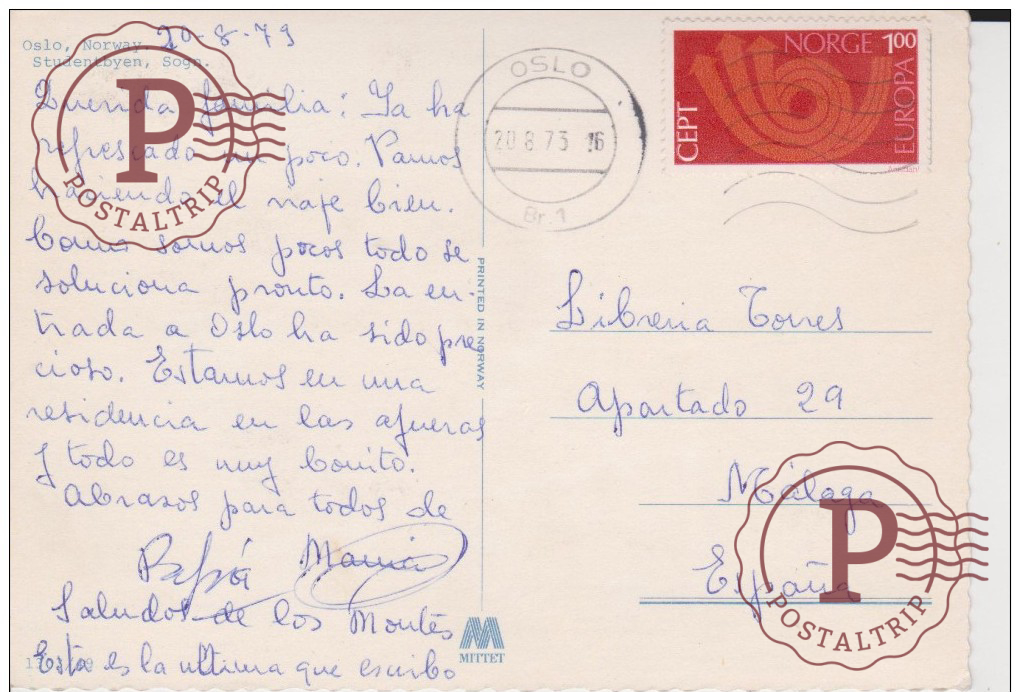 Oslo, Norway. 20-8-73
Studentbyen, Sogn.
Querida familia: Ya ha
refrescado un poco. Vamos
haciendo el viaje bien.
Como somos pocos todo se
soluciona pronto. La en-
trada a Oslo ha sido pre
cioso. Estamos en una
residencia en las afueras
y todo es muy bonito.
Abrasos para todos de
Papá Maria
Saludos de los Montes
Esta es la ultima que escribo
PRINTED IN NORWAY
MITTET
OSLO
20 8 73 16
Br. 1
NORGE 100
EUROPA
CEPT
Libreria Torres
Apartado 29
Málaga
España
P
POSTALTRIP
P
POSTALTRIP